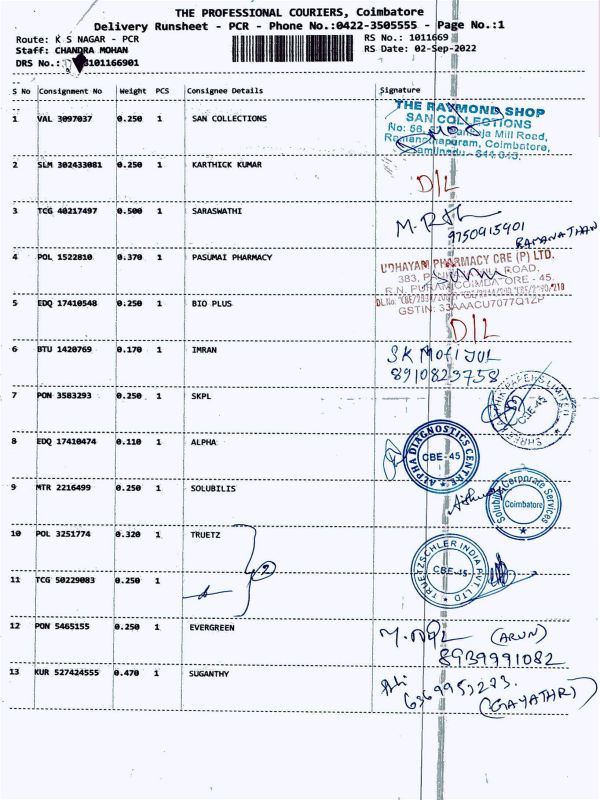 THE PROFESSIONAL COURIERS, Coimbatore
Delivery Runsheet - PCR - Phone No.:0422-3505555 - Page No.:1
Route: K S NAGAR - PCR
RS No.: 1011669
Staff: CHANDRA MOHAN
RS Date: 02-Sep-2022
DRS No.: 3101166901
S No Consignment No Weight PCS Consignee Details Signature
1 VAL 3097037 0.250 1 SAN COLLECTIONS
THE RAYMOND SHOP
SAN COLLECTIONS
No: 56, Mill Road,
Ramanathapuram, Coimbatore,
Tamilnadu - 641 045.
2 SLM 302433081 0.250 1 KARTHICK KUMAR
D/L
3 TCG 40217497 0.500 1 SARASWATHI
9750915901
RAMANATHAN
4 POL 1522810 0.370 1 PASUMAI PHARMACY
UDHAYAM PHARMACY CBE (P) LTD.
383, ROAD,
R.N. PURAM, COIMBATORE - 45.
GSTIN: 33AAACU7077Q1ZP
5 EDQ 17410548 0.250 1 BIO PLUS
D/L
6 BTU 1420769 0.170 1 IMRAN
SK Mofi JUL
8910823758
7 PON 3583293 0.250 1 SKPL
CBE-45
8 EDQ 17410474 0.110 1 ALPHA
ALPHA DIAGNOSTICS CENTRE
CBE-45
9 MTR 2216499 0.250 1 SOLUBILIS
Solubilis Corporate Services
Coimbatore
10 POL 3251774 0.320 1 TRUETZ
2
TRUETZSCHLER INDIA PVT. LTD
CBE-45
11 TCG 50229083 0.250 1
12 PON 5465155 0.250 1 EVERGREEN
(ARUN)
8939991082
13 KUR 527424555 0.470 1 SUGANTHY
6369953273.
(GAYATHRI)